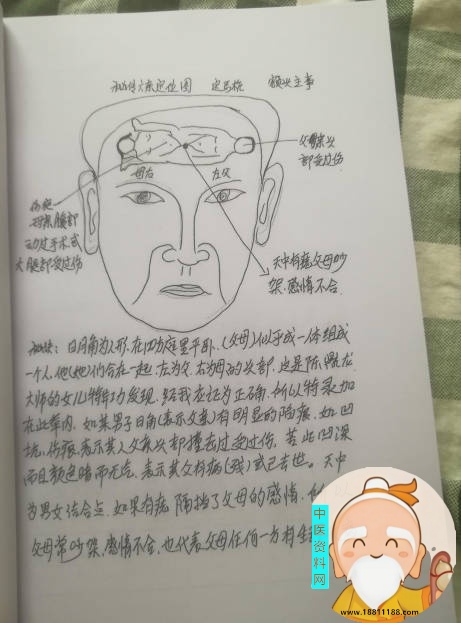 秘传六亲定位图 定三格 额头主事
父母亲头
部受过伤
母右 左父
伤疤
母亲腹部
动过手术或
大腿部受过伤
天中有痣父母吵
架.感情不合
秘诀：日月角为人形.在四方庭里平卧.(父母)似乎成一体组成
一个人.他(她)们合在一起.左为父.右为母的头部.这是陈鼎龙
大师的女儿特异功发现.经我应证为正确.所以特录加
在此章内.如果男子日角(表示父亲)有明显的陷痕.如凹
坑.伤痕.表示其人父亲头部撞击过受过伤.若此凹深
而且颜色暗而无亮.表示其父有病(残)或已去世。天中
为男女结合点.如果有痣.隔挡了父母的感情.
父母常吵架.感情不合.也代表父母任何一方有生
中医资料网
www.18811188.com